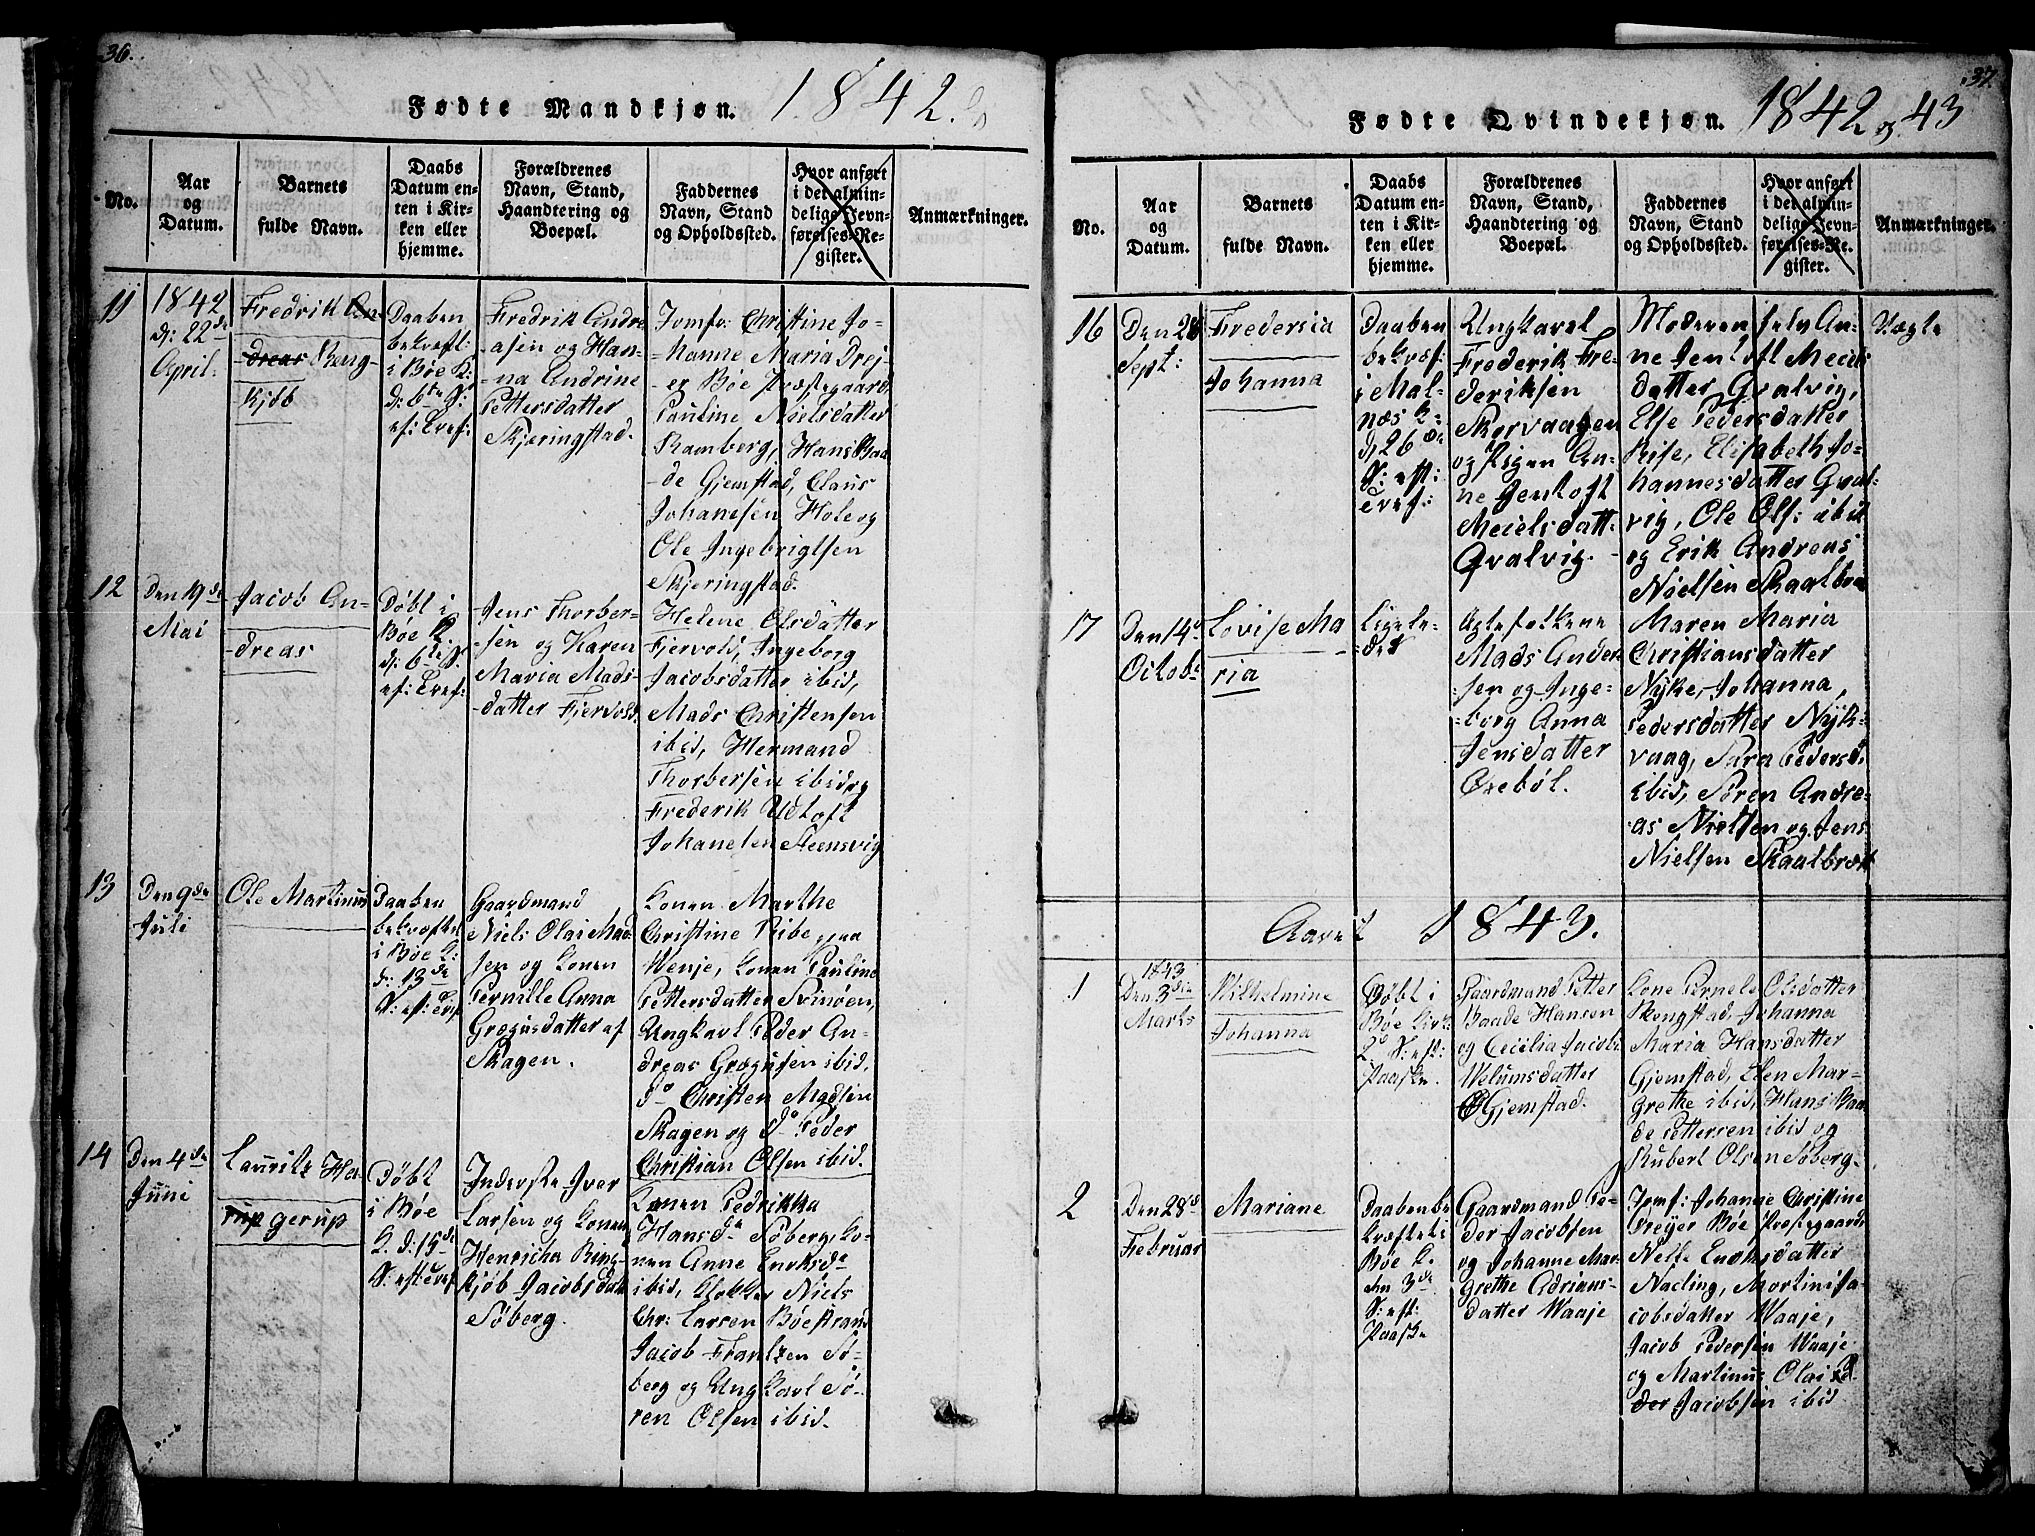 36.
Fødte Mandkjøn. 1842.
No.
Aar
og
Datum.
Barnets
fulde Navn.
Daabs
Datum en-
ten i Kir-
ken eller
hjemme.
Forældrenes
Navn, Stand,
Haandtering og
Boepæl.
Faddernes
Navn, Stand
og Opholdssted.
Hvor anført
i det almin-
delige Jevn-
førelses-Re-
gister.
Anmærkninger.
11
1842
d: 22de
April.
Fredrik An-
-dreas Reng-
Kjøb
Daaben
bekræft:
i Bøe K:
d: 6te S:
ef: Tref:
Fredrik Andre
-asen og Han-
-na Andrine
Pettersdatter
Skjeringstad.
Jomfr: Christine Jo-
-hanne Maria Drej-
-er Bøe Præstegaard
Pauline Nielsdatter
Ramberg, Hans Baa
-de Gjemstad, Claus
Johansen Hole og
Ole Ingebrigtsen
Skjeringstad.
12
Den 19de
Mai
Jacob An-
-dreas
Døbt i
Bøe K.
d: 6te S.
ef: Tref:
Jens Thorber-
-sen og Karen
Maria Mads-
-datter Fjervold.
Helene Olsdatter
Fjervold, Ingeborg
Jacobsdatter ibid,
Mads Christensen
ibid, Hermand
Thorbersen ibid og
Frederik Udtoft
Johansen Steensvig
13
Den 9de
Juli
Ole Martinus
Daaben
bekræftet
i Bøe K:
d: 13de
S: ef: Tref
Gaardmand
Niels Olai Mad
sen og Konen
Pernille Anna
Gregusdatter af
Skagen.
Konen Marthe
Christine Ribe paa
Wenje, Konen Pauline
Pettersdatter Svinøen,
Ungkarl Peder An-
dreas Gregusen ibid,
do Christen Madsen
Skagen og do Peder
Christian Olsen ibid.
14
Den 4de
Juni
Lauritz Ha-
gerup
Døbt
i Bøe
K. d: 15de
S: ef: Tref
Inderste Iver
Larsen og Konen
Henricha Ring-
kjøb Jacobsdatt
Søberg.
Konen Pedrikka
Hansda Søberg, Ko-
nen Anne Enoksda
ibid, Klokker Niels
Chr: Larsen Bøestrand
Jacob Frantzen Sø-
berg og Ungkarl Sø-
ren Olsen ibid.
37.
Fødte Qvindekjøn. 1842 og 43
No.
Aar
og
Datum.
Barnets
fulde Navn.
Daabs
Datum en-
ten i Kir-
ken eller
hjemme.
Forældrenes
Navn, Stand,
Haandtering og
Boepæl.
Faddernes
Navn, Stand
og Opholdssted.
Hvor anført
i det almin-
delige Jevn-
førelses-Re-
gister.
Anmærkninger.
16
Den 28
Sept:
Fredersia
Johanna
Daaben
bekræf:
i Mal-
næs K:
d, 26de
S: eft:
Tref:
Ungkarl
Frederik Fre-
deriksen
Skorvaagen
og Pigen An-
ne Jentoft
Meielsdatt-
Qvalvig.
Moderen selv An-
ne Jentoft Meiels
datter Qvalvig,
Else Pedersdatter
Rise, Elisabeth Jo-
hannesdatter Qval-
vig, Ole Ols: ibid
og Erik Andreas
Nielsen Skaalbræ
Uægte
17
Den 14de
Octobr
Lovise Ma
ria
Ligele-
-des
Ægtefolkene
Mads Ander-
-sen og Inge-
-borg Anna
Jensdatter
Oxebøl.
Maren Maria
Christiansdatter
Nyke, Johanna
Pedersdatter Nyk-
vaag, Sara Pedersd
ibid, Søren Andre-
as Nielsen og Jens
Nielsen Skaalbræk
Aaret 1843.
1
1843
Den 3die
Marts
Wilhelmine
Johanna
Døbt i
Bøe Kirk:
2d S: eft:
Paaske.
Gaardmand Petter
Baade Hansen
og Cecilia Jacob:
Welumsdatter
Gjemstad.
Kone Pernele Olsdatter
Rengstad, Johanna
Maria Hansdatter
Gjemstad, Elen Mar-
grethe ibid, Hans Baa
de Pettersen ibid og
Rubert Olsen Søberg.
2
Den 28de
Februar
Mariane
Daaben be
kræftet i
Bøe K.
den 3de
S: eft:
Paaske
Gaardmand Pe-
der Jacobsen
og Johanne Mar-
grethe Adrians-
datter Waaje
Jomf: Johanne Christine
Dreyer Bøe Præstegaard
Nelle Enoksdatter
Nacling, Martini Ja
cobsdatter Waaje,
Jacob Pedersen Waaje
og Martinus Olai Pe
der Jacobsen ibid